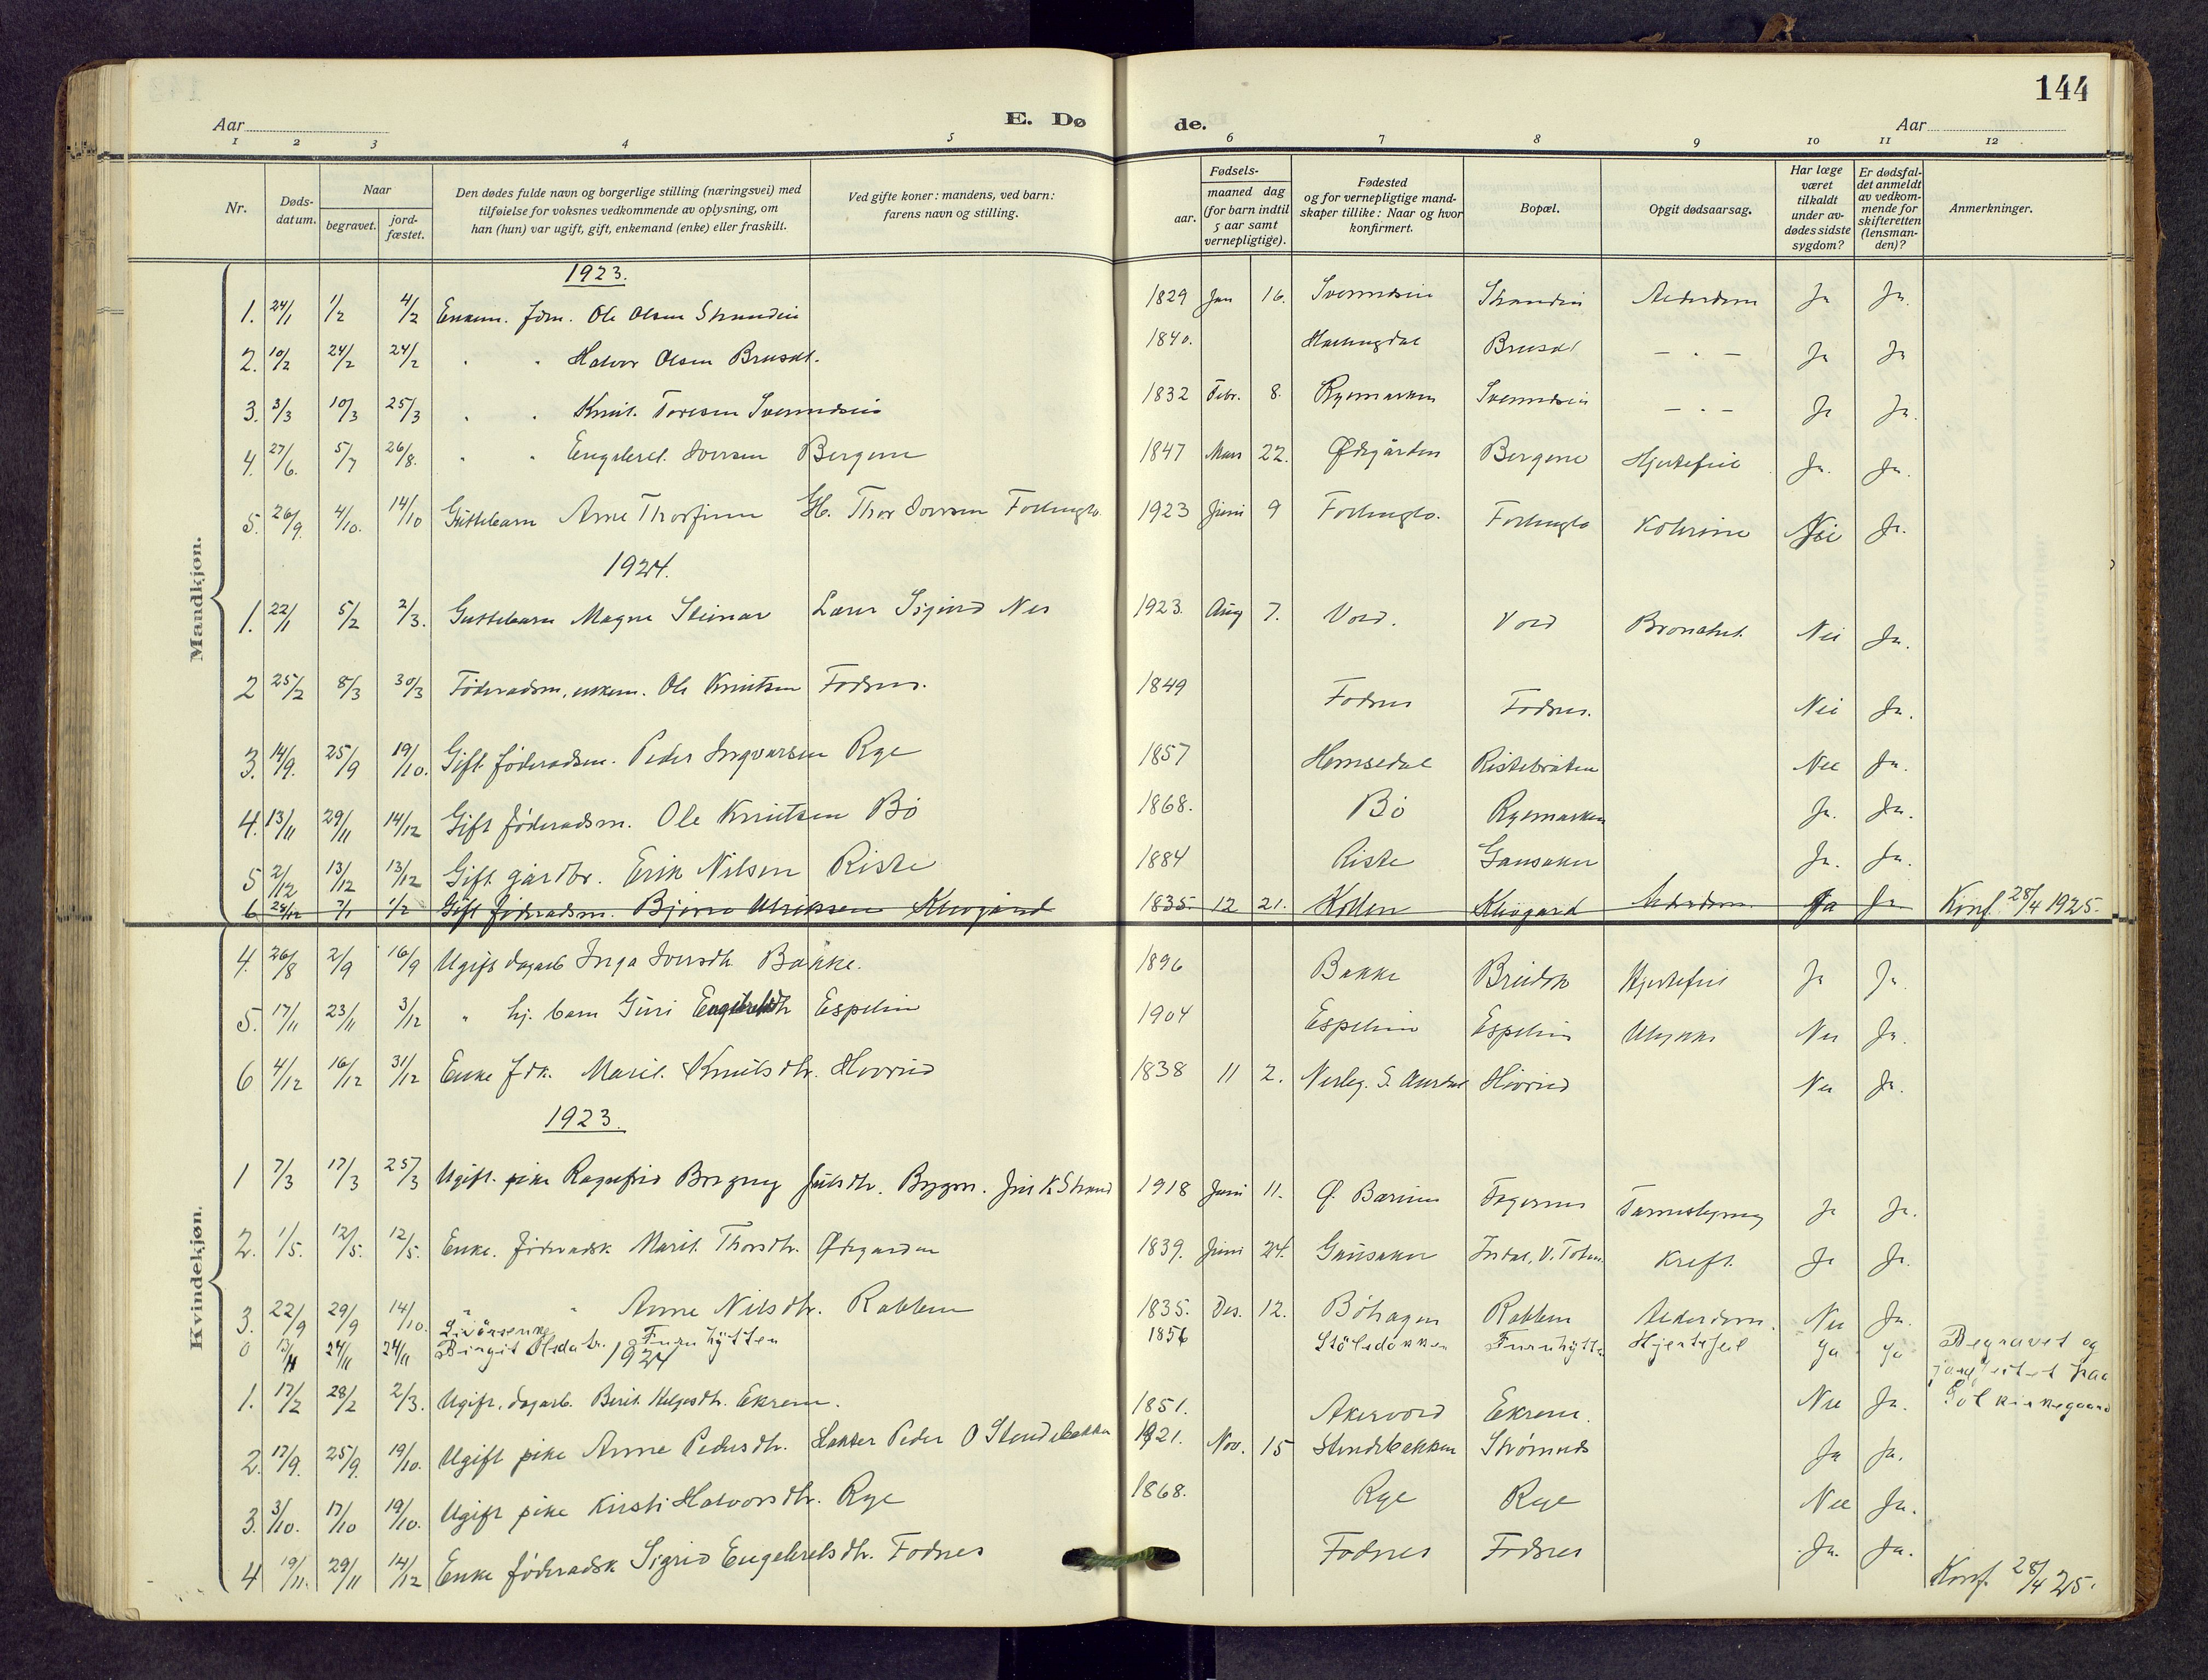 144
Aar
E. Dø
de.
Aar
1 2 3 4 5 6 7 8 9 10 11 12
Nr.
Døds-datum.
Naar
begravet.
jord-fæstet.
Den dødes fulde navn og borgerlige stilling (næringsvei) med
tilføielse for voksnes vedkommende av oplysning, om
han (hun) var ugift, gift, enkemand (enke) eller fraskilt.
Ved gifte koner: mandens, ved barn:
farens navn og stilling.
Fødsels-
aar.
maaned dag
(for barn indtil
5 aar samt
vernepligtige).
Fødested
og for vernepligtige mand-
skaper tillike: Naar og hvor
konfirmert.
Bopæl.
Opgit dødsaarsag.
Har læge
været
tilkaldt
under av-
dødes sidste
sygdom?
Er dødsfal-
det anmeldt
av vedkom-
mende for
skifteretten
(lensman-
den)?
Anmerkninger.
Mandkjøn.
1923.
1. 24/1 1/2 4/2 Enkem. fdm. Ole Olsen Strandin 1829 Jan 16. Svenndsin Strandin Alderdom Ja Ja.
2. 10/2 24/2 24/2 " " Halvor Olsen Brusdl. 1840. Hallingdal Brusdl - " - Ja Ja
3. 3/3 10/3 25/3 " " Knut Toresen Svenndsin 1832 Febr. 8. Ryemarken Svenndsin - " - Ja Ja.
4. 27/6. 5/7 26/8. " " Engebret Iversen Bergene 1847 Mars 22. Ødegården Bergene Hjertefeil Ja. Ja.
5. 26/9. 4/10. 14/10 Guttebarn Arne Thorfinn Gb. Thor Iversen 1923 Juni 9 Kolerine Nei Ja.
1924.
1. 22/1 5/2 2/3. Guttebarn Magne Steinar Lærer Sigurd Nes 1923. Aug 7. Vold. Vold Bronchit. Nei Ja.
2 25/2 8/3 30/3 Føderadsm, enkem. Ole Knutsen Fodnes. 1849 Fodnes Fodnes. Nei Ja.
3. 14/9. 25/9 19/10. Gift føderadsm. Peder Ingvarsen Rye 1857 Hemsedal Ristebråten Nei Ja.
4. 13/11 29/11 14/12 Gift føderadsm. Ole Knutsen Bø 1868. Bø Ryemarken Ja. Ja.
5 2/12 13/12 13/12 Gift gårdbr. Erik Nilsen Riste 1884 Riste Gausaker Ja. Ja.
6 28/12 7/1 1/2 Gift føderadsm. Bjørn Ulriksen 1835. 12 21. Kollen Alderdom Ja Ja Konf. 28/4 1925.
Kvindekjøn.
4. 26/8 2/9 16/9 Ugift dagarb Inga Iversdtr. Bakke. 1896 Bakke Hjertefeil Ja Ja.
5. 17/11 23/11 3/12 " hj. barn Guri Engebretsdtr Espelien 1904 Espelien Espelien Ulykke Nei Ja.
6 4/12 16/12 31/12 Enke fdk. Marit Knutsdtr. Hovrud 1838 11 2. S. Aurdal Hovrud Nei Ja.
1923.
1 7/3 17/3 25/3 Ugift pike Ragnfrid Borgny Julsdtr. Bygm. Jul K Strand 1918 Juni 11. Ø. Bærum Fagernes Tarmslyng Ja Ja.
2. 1/5. 12/5. 12/5. Enke. føderadsk Marit Thorsdtr. Ødegarden 1839. Juni 24. Gausaker V. Toten Kreft Ja Ja.
3. 22/9 29/9 14/10. " " Anne Nilsdtr. Robben 1835. Des. 12. Bøhagen Robben Alderdom. Nei Ja.
0 13/11 24/11 24/11 Livørsenke Birgit Olsdatr. Furuhytten 1856 Stølsdokken Furuhytta Hjertefeil Ja Ja Begravet og jordfestet paa Gol kirkegaard
1924
1. 17/2 28/2 2/3. Ugift, dagarb. Berit Helgesdtr. Ekren. 1851. Akervold Ekren. Nei Ja.
2. 17/9. 25/9. 19/10. Ugift pike Anne Pedersdtr. Peder O Stendsbakken 1921. Nov. 15 Stendsbakken Strømnes Ja Ja.
3. 3/10. 17/10 19/10. Ugift pike Kirsti Halvorsdtr. Rye 1868. Rye Rye Nei Ja.
4 19/11. 29/11 14/12 Enke føderadsk Sigrid Engebretsdtr. Fodnes Fodnes Fodnes Ja. Ja.
Konf. 28/4 25.